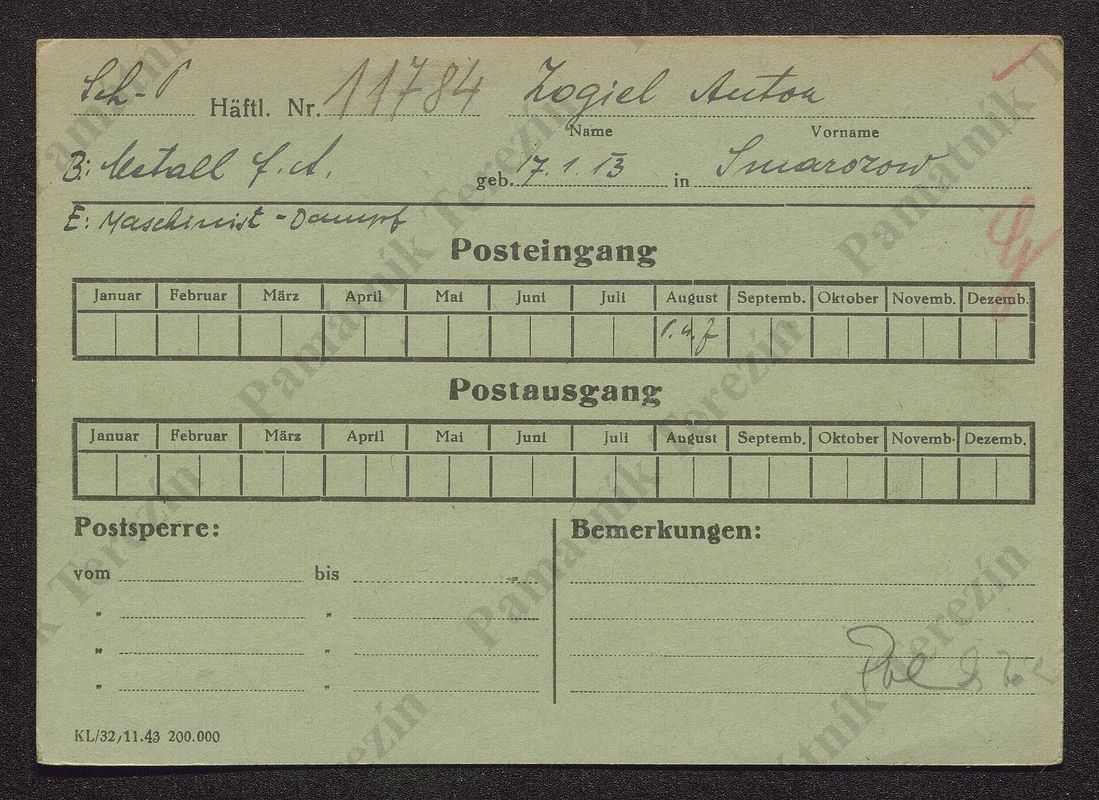 Sch-P Häftl. Nr. 11784 Zogiel Anton
Name Vorname
B: Metall f. A. geb. 17.1.13 in Smarozow
E: Maschinist - Dampf
Posteingang
Januar Februar März April Mai Juni Juli August Septemb. Oktober Novemb. Dezemb.
Postausgang
Januar Februar März April Mai Juni Juli August Septemb. Oktober Novemb. Dezemb.
Postsperre: Bemerkungen:
vom bis
" "
" "
" "
Pol
KL/32, 11.43 200.000
Památník Terezín